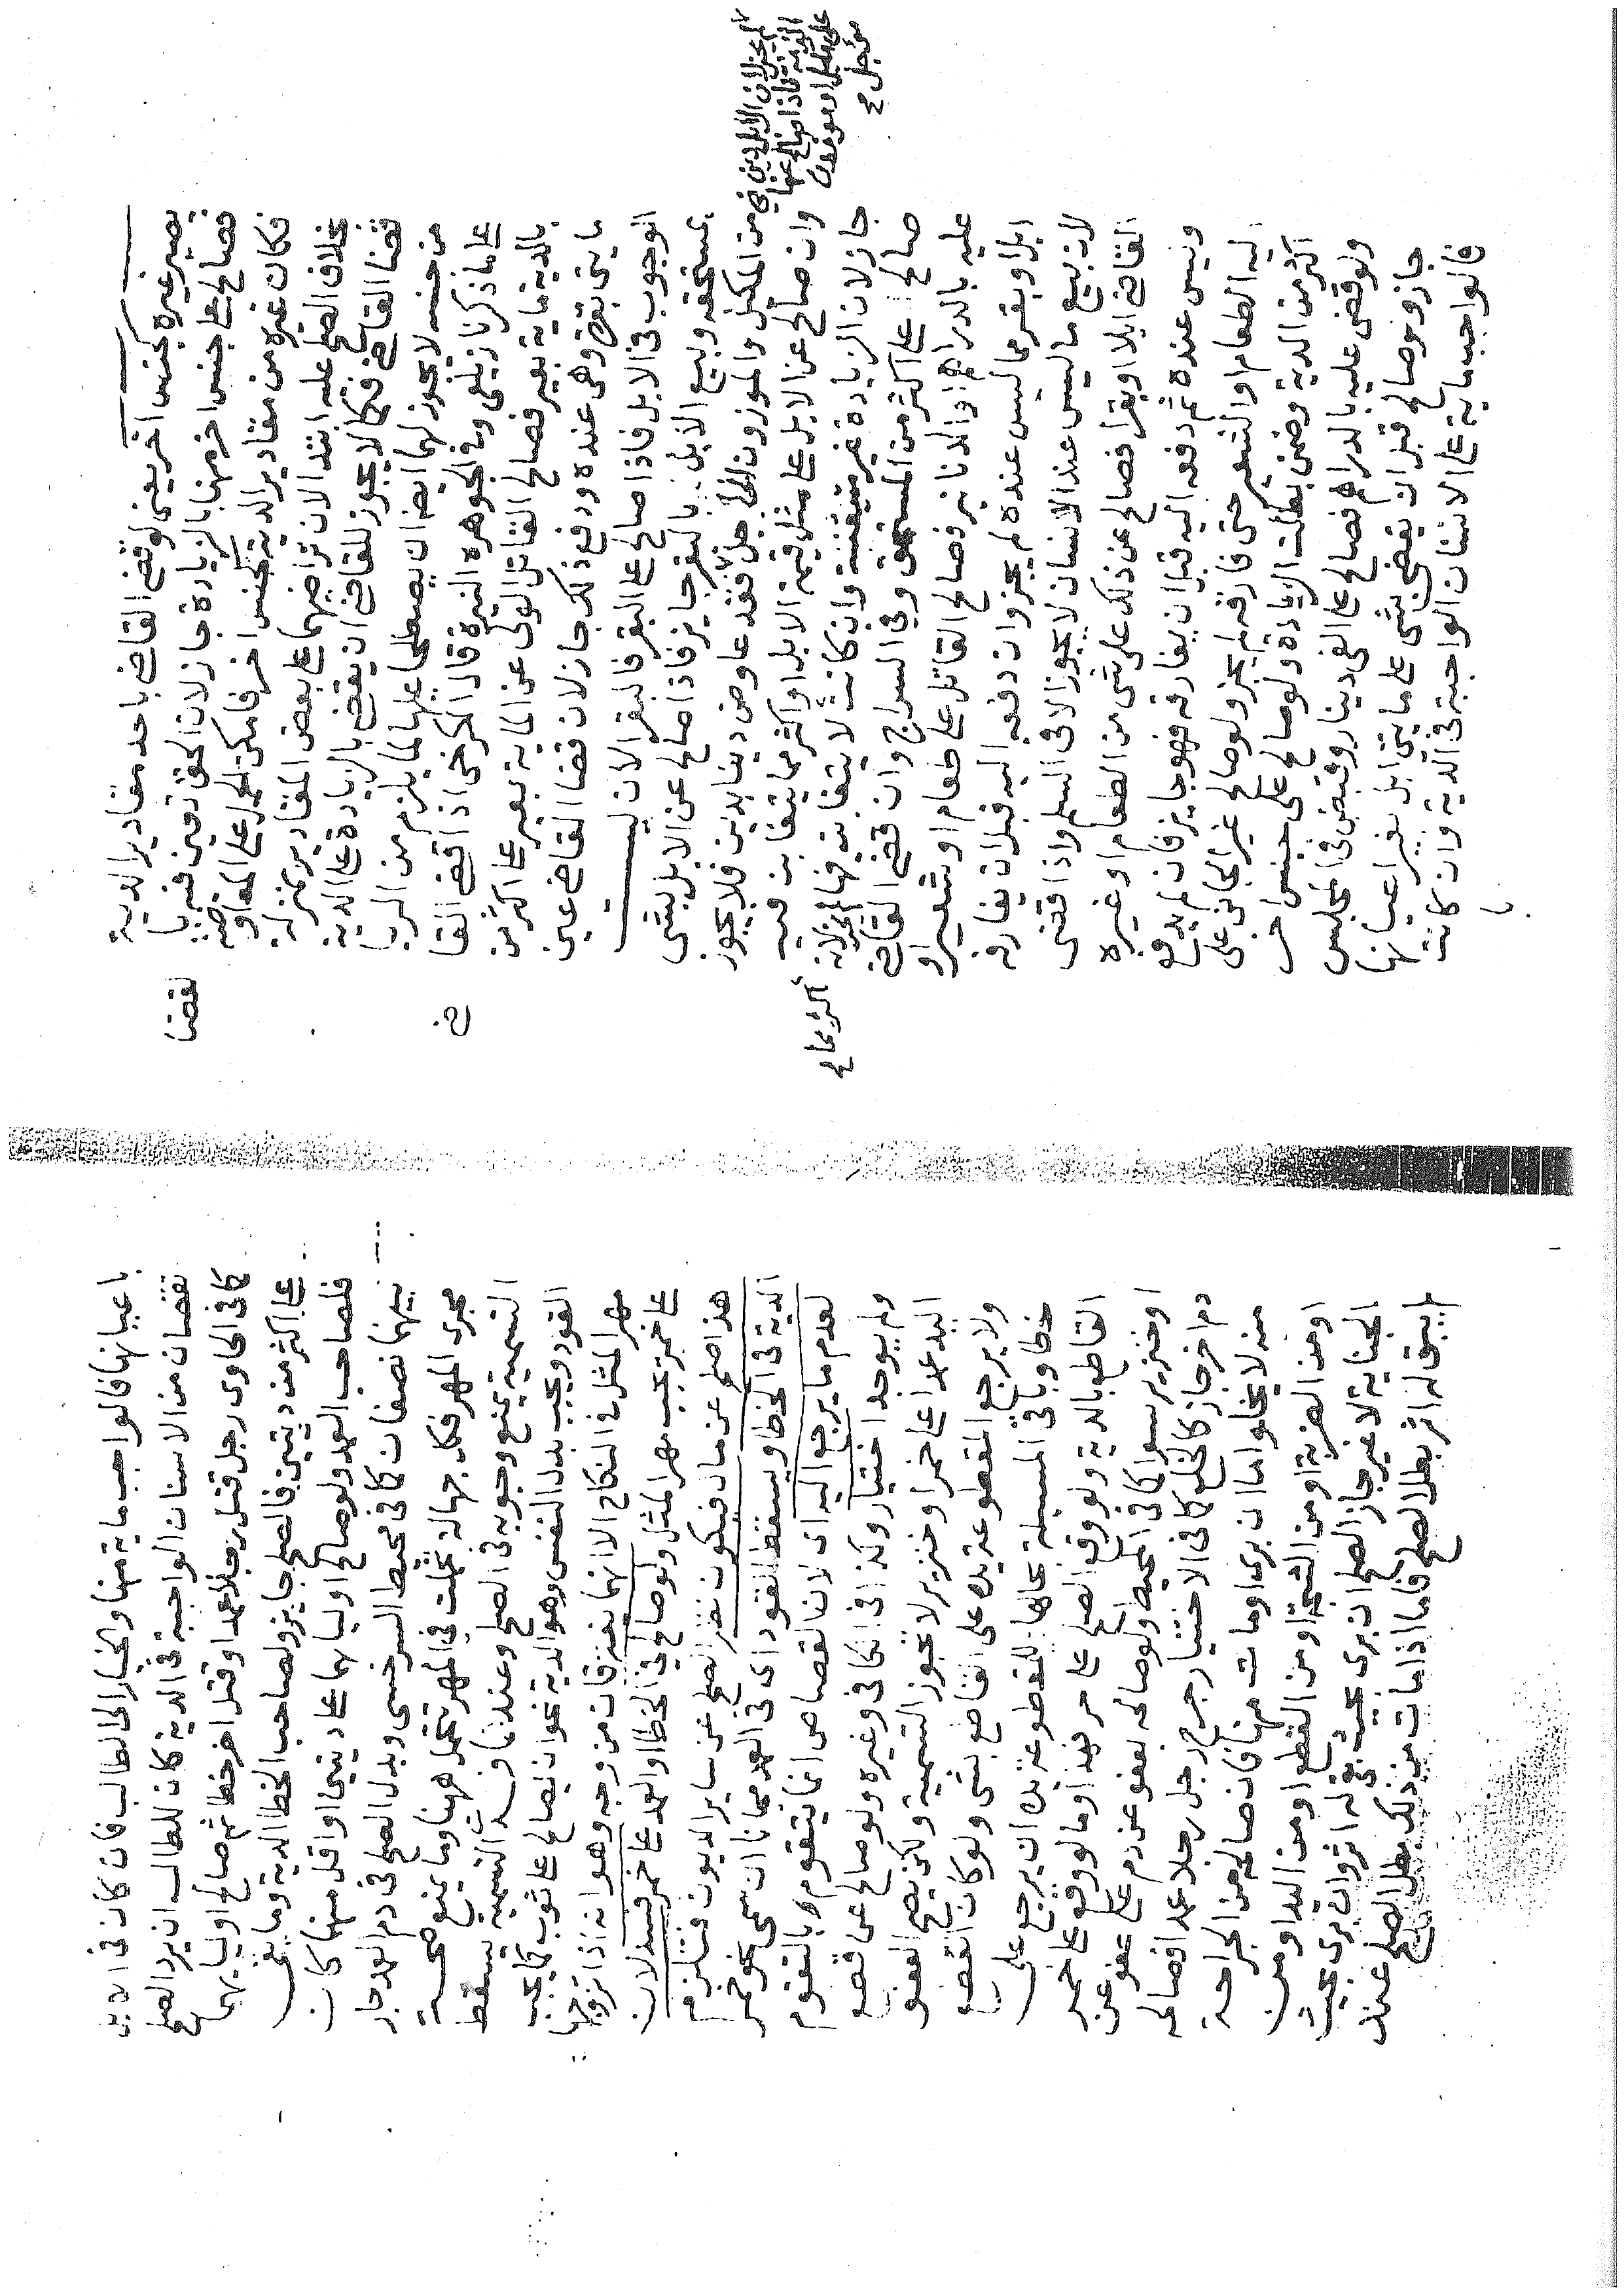 يصير غيره كجنس آخر يعنى لو قضى القاضى باحد مقادير الدية
فصالح على جنس اخر منها بالزيادة جاز لان الحق تعين فيه با
لقضا
فكان غيره من مقادير الدية كجنس اخر فامكن الحمل على المعاوضة
بخلاف الصلح عليه ابتداء لان تراضيهما على بعض المقادير بمنزلة
قضا القاضى فكما لا يجوز للقاضى ان يقضى بالزيادة على الدية
من جنسه لا يجوز لهما ايضا ان يصطلحا عليها لما يلزم من الربا
على ما ذكرنا زيلعى وفى الجوهرة النيرة قال الكرخى اذا قضى القا
ضى
بالدية ماية بعير فصالح القاتل الولى عن الماية بعير على اكثر من
ما يتى بقرة وهى عنده ودفع ذلك جاز لان قضا القاضى عين
الوجوب فى الابل فاذا صالح على البقر فالبقر الان ليست
بمستحقه وبيع الابل بالبقر جايز فاذا صالح عن الابل بشى
من المكيل والموزون الى اجل فقد عاوض دينا بدين فلا يجوز
لم يجز لان الابل دين فى
الذمة فاذا صالح عنها
على مكيل او موزون
مؤجل
وان صالح عن الابل على مثل قيمة الابل او اكثر مما يتغابن فيه
جاز لان الزيادة غير متيقنة وان كانت لا يتغابن فيها لم يجز لانه
اكثر مما
صالح على اكثر من المستحق وفى السراج وان قضى القاضى
عليه بالدراهم او الدنانير فصالح القاتل على طعام او شعير او
ابل او بقر مما ليس عنده لم يجز وان دفعه اليه قبل ان يفارقه
لان بيع ما ليس عند الانسان لا يجوز الا فى السلم واذا قضى
القاضى ابلا او بقرا فصالح عن ذلك على شى من الطعام او غيره
وليس عنده ثم دفعه اليه قبل ان يفارقه فهو جايز فان لم يدفع
اليه الطعام او الشعير حتى فارقه لم يجز ولو صالح غير الجانى على
اكثر من الدية وضمن بطلت الزيادة ولو صالح على جنس اخر
ولو قضى عليه بالدراهم فصالح على الفى دينار وقبض فى المجلس
جاز ولو صالح قبل ان يقضى بشى على مايتى ابل بغير اعيانها
فالواجب ماية على الاسنان الواجبة فى الدية وان كانت
با
باعيانها فالواجب ماية منها والخيار الى الطالب فان كان فى الابل
نقصان من الاسنان الواجبة فى الدية كان للطالب ان يرد الصلح
كما فى الحاوى رجل قتل رجلا عمدا وقتل اخر خطا ثم صالح اولياءهما
على اكثر من ديتين فالصلح جايز ولصاحب الخطا الدية وما بقى
فلصاحب العمد ولو صالح اولياءهما على ديتين او اقل منهما كان
بينهما نصفان كما فى محيط السرخسى وبدل الصلح فى دم العمد جار
مجرى المهر فكل جهالة تحملت فى المهر تتحمل ههنا وما يمنع صحة
التسمية يمنع وجوبه فى الصلح وعند فساد التسمية يسقط
القود ويجب بدل النفس وهو الدية نحو ان يصالح على ثوب كما يجب
مهر المثل فى النكاح الا انهما يفترقان من وجه وهو انه اذا تزوجها
على خمر يجب مهر المثل ولو صالح فى الخطا او العمد على خمر فسد لان
هذا صلح عن مال فيكون نظير الصلح عن ساير الديون فتلزم
الدية فى الخطا ويسقط القود اى فى العمد مجانا ان سمى نحو خمر
لعدم ما يرجع اليه اى لان القصاص انما يتقوم بالتقوم
ولم يوجد اختيار وكذا فى الكافى وغيره ولو صالح عن قطع
اليد عمدا على خمر او خنزير لا تجوز التسمية ولكن يصح العفو
ولا يرجع المقطوعة يده على القاطع بشى ولو كان القطع
خطا وباقى المسيلة بحالها للمقطوعة يده ان يرجع على
القاطع بالدية ولو وقع الصلح على حر فهذا وما لو وقع على خمر
او خنزير سوا كما فى المحيط ولو صالحه بعفو عن دم على عفو عن
دم اخر جاز كالخلع كما فى الاختيار جرح رجل رجلا عمدا فصالحه
منه لا يخلو اما ان برى او مات منها فان صالحه من الجراحة
او من الضربة او من الشجة او من القطع او من اليد او من
الجناية لا غير جاز الصلح ان برى بحيث بقى له اثر وان برى بحيث
لم يبق له اثر بطل الصلح فاما اذا مات من ذلك بطل الصلح عند